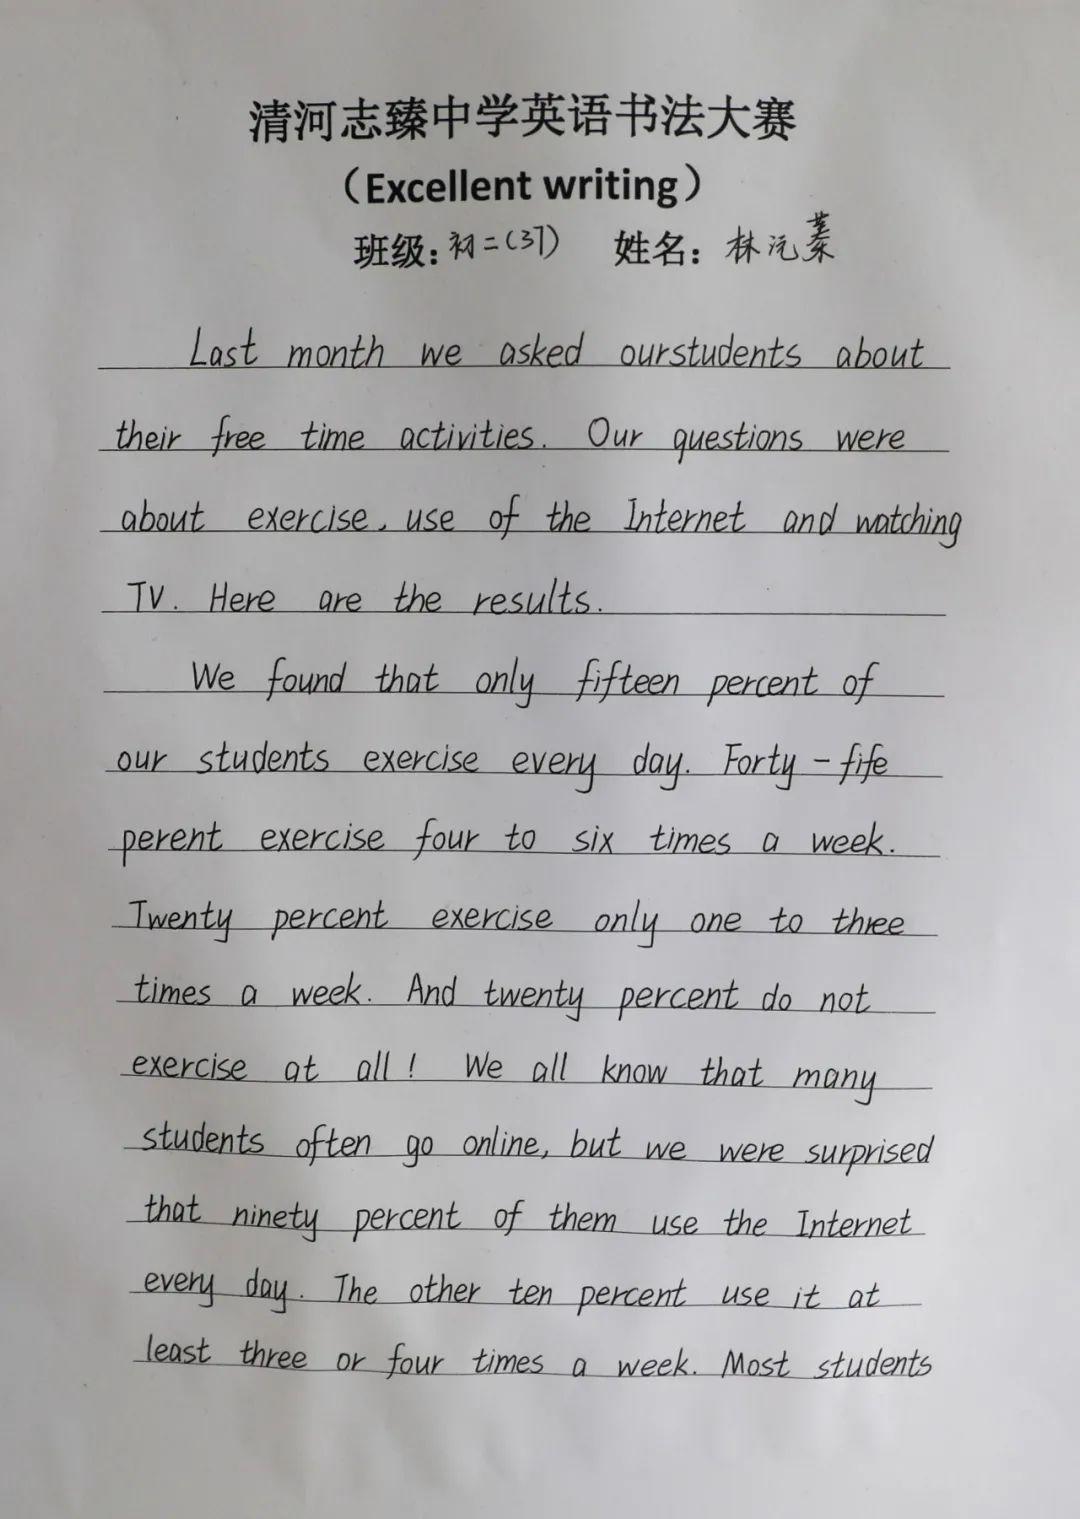 清河志臻中学英语书法大赛
（Excellent writing）
班级：初二（37） 姓名：林沅蓁
Last month we asked ourstudents about
their free time activities. Our questions were
about exercise, use of the Internet and watching
TV. Here are the results.
We found that only fifteen percent of
our students exercise every day. Forty-fife
perent exercise four to six times a week.
Twenty percent exercise only one to three
times a week. And twenty percent do not
exercise at all! We all know that many
students often go online, but we were surprised
that ninety percent of them use the Internet
every day. The other ten percent use it at
least three or four times a week. Most students